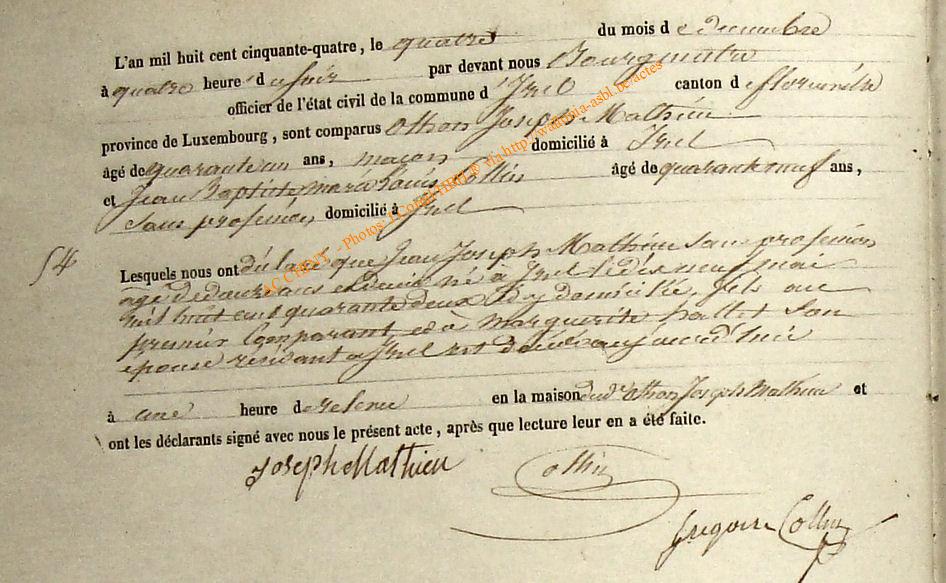 L'an mil huit cent cinquante-quatre, le quatre du mois de decembre
à quatre heure du soir par devant nous Bourgmestre
officier de l'état civil de la commune d'Izel canton de florenville
province de Luxembourg, sont comparus Othon Joseph Mathieu
âgé de quarante un ans, maçon domicilié à Izel
et Jean Baptiste, Collin âgé de quarante neuf ans,
sans profession, domicilié à Izel
54
Lesquels nous ont déclaré que Jean Joseph Mathieu sans profession
agé de douze ans né à Izel le dix neuf mai
mil huit cent quarante deux y domicilié, fils au
premier Comparant et à Marguerite hallet son
épouse résidant à Izel est décédé aujourd'hui
à une heure de en la maison dud' Othon Joseph Mathieu et
ont les déclarants signé avec nous le présent acte, après que lecture leur en a été faite.
Joseph Mathieu
Collin
Grégoire Collin
ACCHENT - Photos: J.Collot/HBH ® via http://wallonia-asbl.be/actes